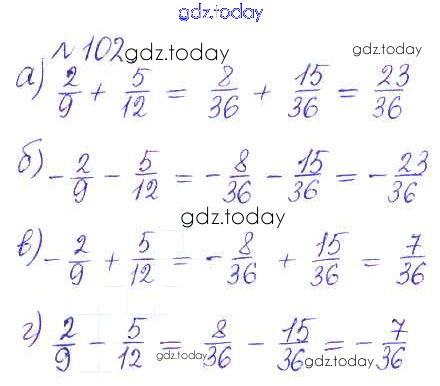 gdz.today
№ 102 gdz.today gdz.today
а) 2/9 + 5/12 = 8/36 + 15/36 = 23/36
б) -2/9 - 5/12 = -8/36 - 15/36 = -23/36
gdz.today
в) -2/9 + 5/12 = -8/36 + 15/36 = 7/36
г) 2/9 - 5/12 = 8/36 - 15/36 = -7/36
gdz.today gdz.today gdz.today